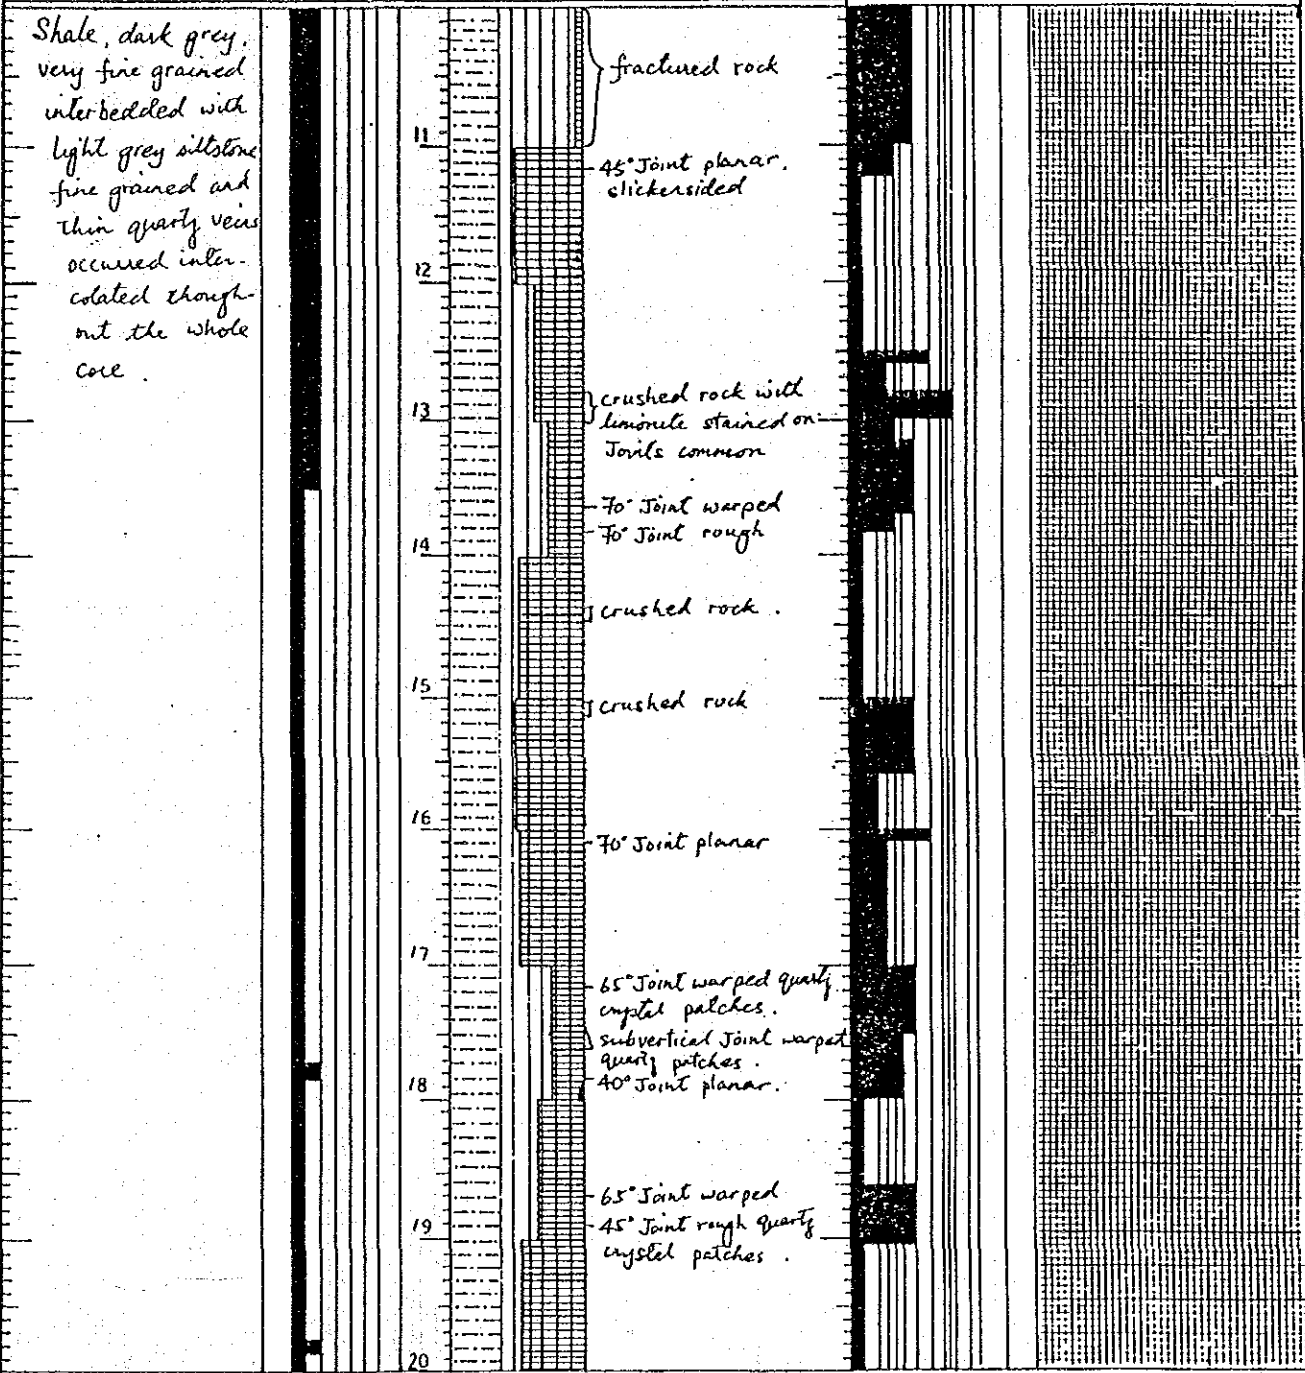 Shale, dark grey,
very fine grained
interbedded with
light grey siltstone
fine grained and
thin quartz veins
occurred inter-
colated though-
out the whole
core.
fractured rock
11
45° Joint planar.
slickersided
12
crushed rock with
13
limonite stained on
Joints common
70° Joint warped
70° Joint rough
14
crushed rock.
15
crushed rock
16
70° Joint planar
17
65° Joint warped quartz
crystal patches.
subvertical Joint warpat
quartz patches.
18
40° Joint planar.
65° Joint warped
19
45° Joint rough quartz
crystal patches.
20